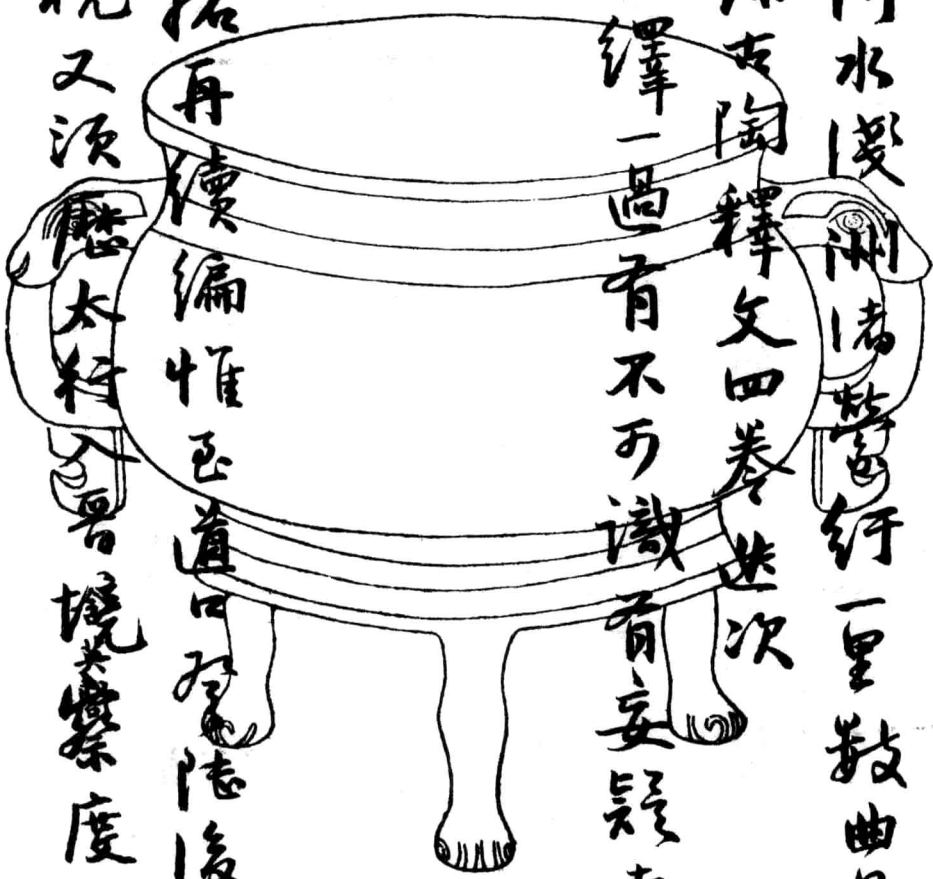 水淺洲渚縈紆一里數曲
古陶釋文四卷迭次
繹一過有不可識有妄疑
再續編惟至道口登陸後
又須太行入晉境度